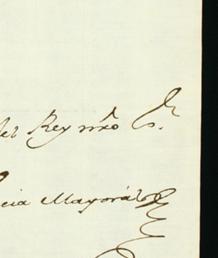 del Rey nro S.r
cia Mayoral